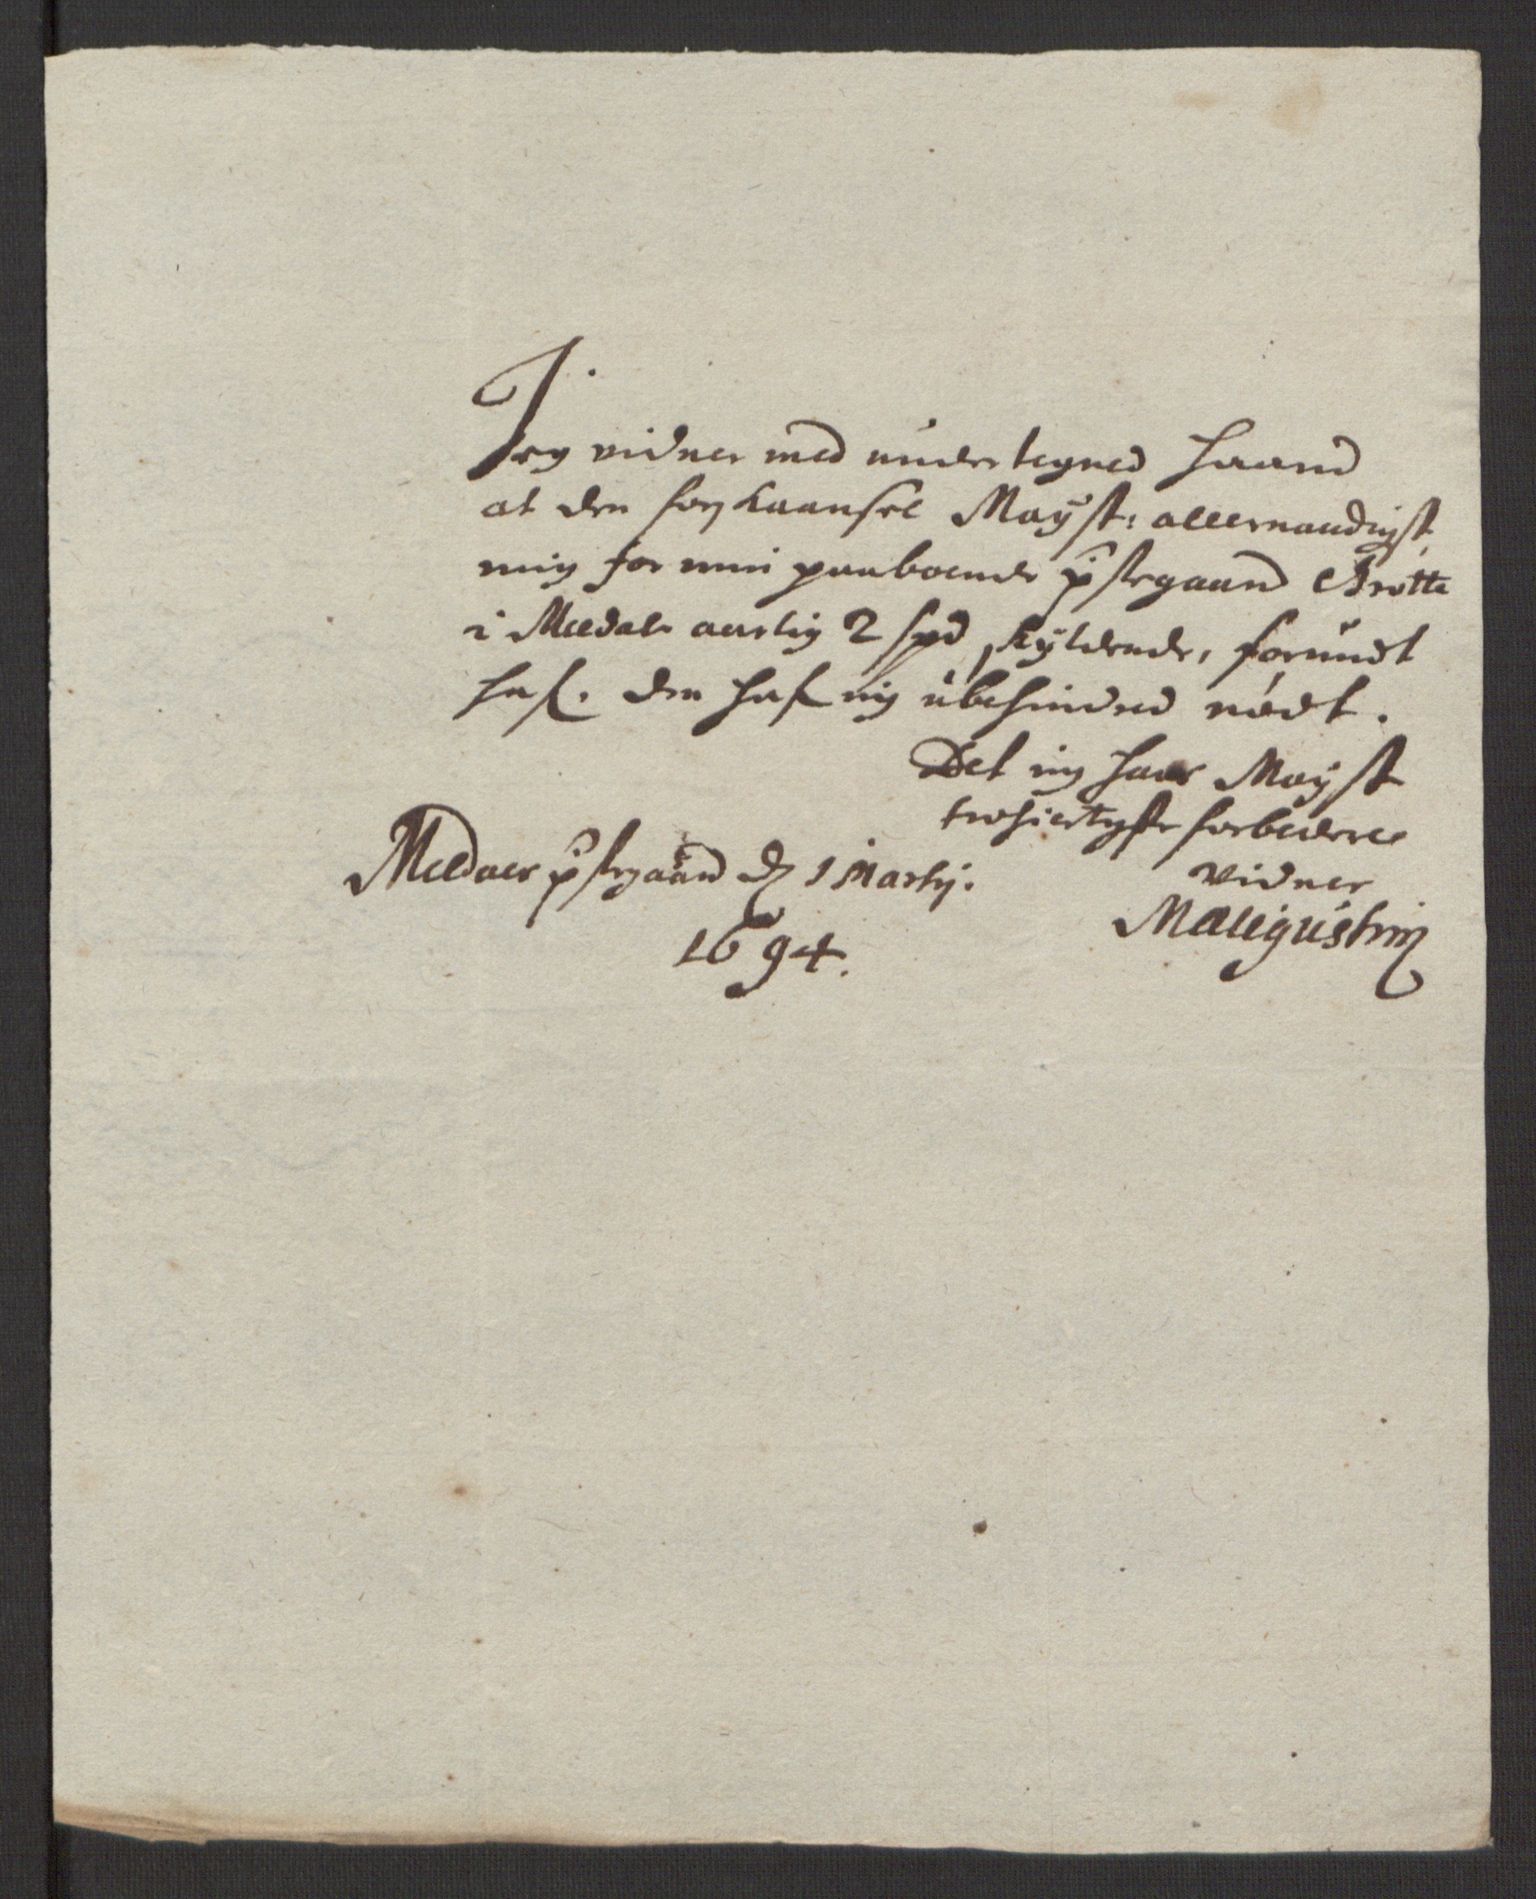 Jeg vidner med undertegned haand
at den forskaansel Mayst: allernaadigst
mig for min paaboende pstegaard Grötte
i Meldals aarlig 2 spd skyldende, forundt
haf. den haf ieg ubehindred nödt.
Det ieg hans Mayst
trohiertigste forbedere
vidner
Meldaer pstegaard d 1 Martij.
1694.